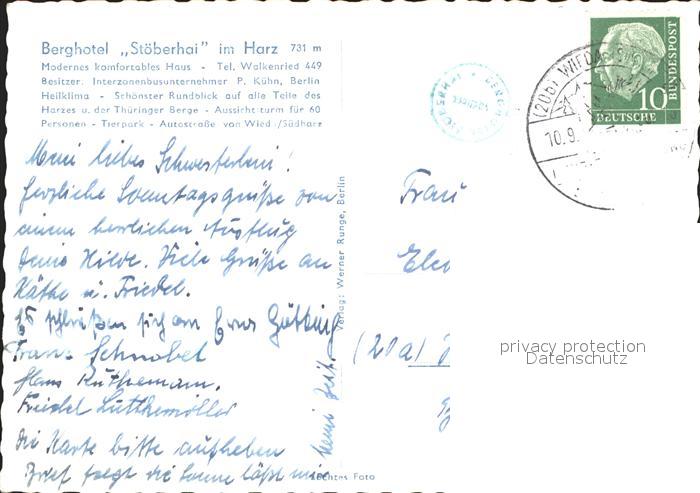 Berghotel „Stöberhai" im Harz 731 m
Modernes komfortables Haus - Tel. Walkenried 449
Besitzer: Interzonenbusunternehmer P. Kühn, Berlin
Heilklima - Schönster Rundblick auf alle Teile des
Harzes u. der Thüringer Berge - Aussichtsturm für 60
Personen - Tierpark - Autostraße von Wied./Südharz
Mein liebes Schwesterlein!
herzliche Sonntagsgrüße von
einem herrlichen Ausflug
Deine Hilde. Viele Grüße an
Käthe u. Friedel.
Es schließen sich an
Franz Schnabel
Hans Ruthemann.
Friedel Lüttkemöller
Die Karte bitte aufheben
Brief folgt die Sonne läßt mir
keine Zeit.
Verlag: Werner Runge, Berlin
Echtes Foto
Frau
(20a)
DEUTSCHE
BUNDESPOST
10
(20b) WIEDA
10.9.
privacy protection
Datenschutz